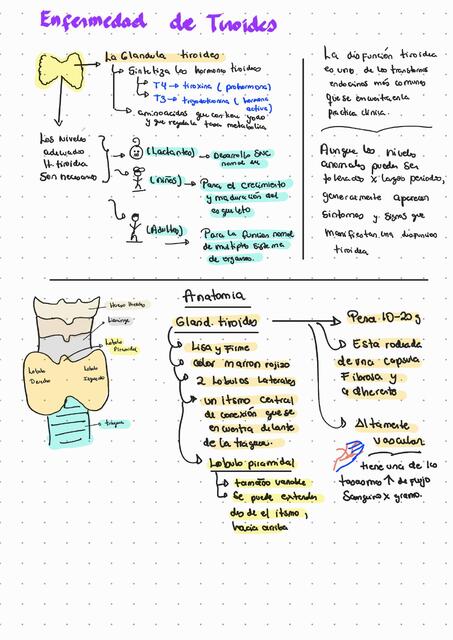 Enfermedad de Tiroides
La Glandula tiroides
Sintetiza las hormona tiroideas
T4 → tiroxina (prohormona)
T3 → triyodotironina (hormona
activa)
aminoacidos que contiene yodo
y que regula la tasa metabolica
Los niveles
adecuados
H. tiroidea
Son necesarios
(Lactantes) → Desarrollo SNC
normal
(niños) → Para el crecimiento
y maduración del
esqueleto
(Adultos) → Para la funcion normal
de multiples sistema
de organos.
La disfunción tiroidea
es uno de los transtornos
endocrinos más comunes
que se encuentra en la
practica clinica.
Aunque los niveles
anormales pueden ser
tolerados x lagos periodos,
generalmente aparecen
sintomas y signos que
manifiestan una disfuncion
tiroidea
Anatomia
Gland. tiroides
Lisa y Firme
color marron rojizo
2 Lobulos laterales
un itsmo central
de conexión que se
encuentra delante
de la traquea.
Lobulo piramidal
tamaño variable
Se puede extender
des de el itsmo,
hacia arriba
Pesa 10-20g
Esta rodeada
de una capsula
Fibrosa y
adherente
Altamente
vascular
tiene una de las
tasas más ↑ de flujo
Sanguineo x gramo.
Hueso hioides
Laringe
Lobulo
Piramidal
Lobulo
Derecho
Lobulo
Izquierdo
traquea